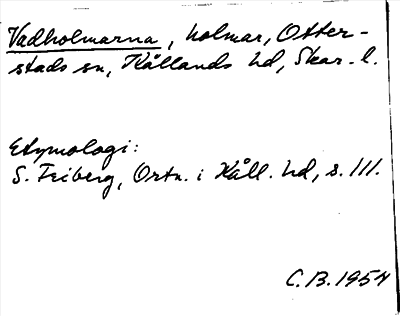 Vadholmarna, holmar, Otter-
stads sn, Kållands hd, Skar. l.
Etymologi:
S. Friberg, Ortn. i Kåll. hd, s. 111.
C.B. 1954